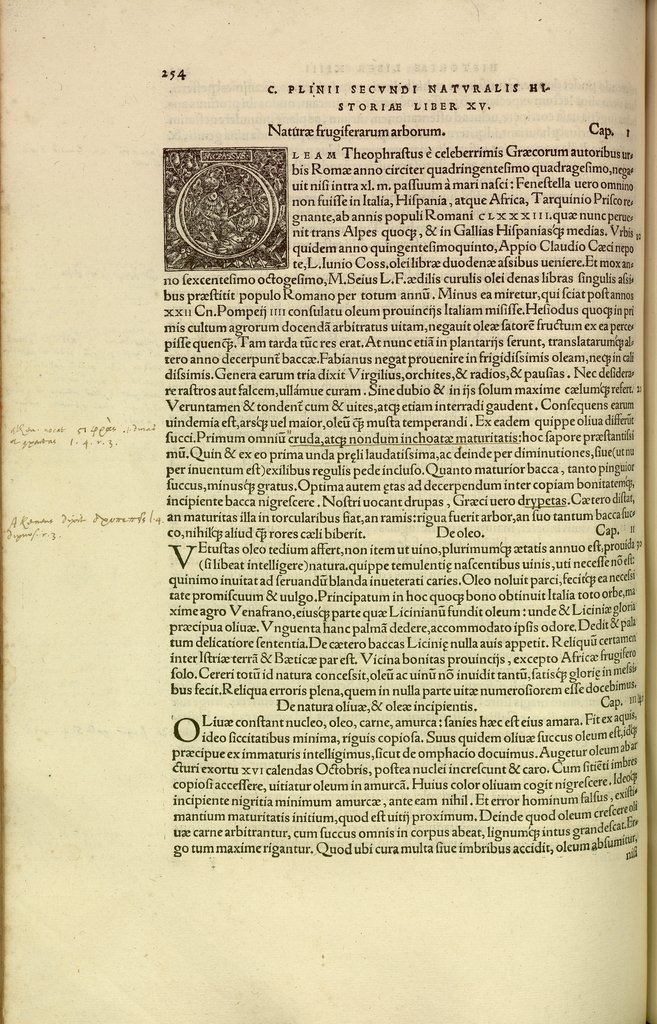 254
C. PLINII SECVNDI NATVRALIS HI-
STORIAE LIBER XV.
Naturæ frugiferarum arborum. Cap. I
OLEAM Theophrastus è celeberrimis Græcorum autoribus ur-
bis Romæ anno circiter quadringentesimo quadragesimo, nega-
uit nisi intra xl. m. passuum à mari nasci: Fenestella uero omnino
non fuisse in Italia, Hispania, atque Africa, Tarquinio Prisco re-
gnante, ab annis populi Romani CLXXXIII. quæ nunc perue-
nit trans Alpes quoq;, & in Gallias Hispaniasq; medias. Vrbis
quidem anno quingentesimoquinto, Appio Claudio Cæci nepo
te, L. Iunio Coss. olei libræ duodenæ assibus ueniere. Et mox an-
no sexcentesimo octogesimo, M. Seius L. F. ædilis curulis olei denas libras singulis assi-
bus præstitit populo Romano per totum annũ. Minus ea miretur, qui sciat post annos
XXII Cn. Pompeij IIII consulatu oleum prouincijs Italiam misisse. Hesiodus quoq; in pri
mis cultum agrorum docendã arbitratus uitam, negauit oleæ satorẽ fructum ex ea perce-
pisse quenq̃. Tam tarda tũc res erat. At nunc etiã in plantarijs serunt, translatarumq; al-
tero anno decerpunt baccæ. Fabianus negat prouenire in frigidissimis oleam, neq; in cali
dissimis. Genera earum tria dixit Virgilius, orchites, & radios, & pausias. Nec desidera-
re rastros aut falcem, ullámue curam. Sine dubio & in ijs solum maxime cælumq; refert.
Veruntamen & tondent cum & uites, atq; etiam interradi gaudent. Consequens earum
uindemia est, arsq; uel maior, oleũ q̃ musta temperandi. Ex eadem quippe oliua differũt
succi. Primum omniũ cruda, atq; nondum inchoatæ maturitatis: hoc sapore præstantissi
mũ. Quin & ex eo prima unda pręli laudatissima, ac deinde per diminutiones, siue (ut nu
per inuentum est) exilibus regulis pede incluso. Quanto maturior bacca, tanto pinguior
succus, minusq; gratus. Optima autem ętas ad decerpendum inter copiam bonitatemq;,
incipiente bacca nigrescere. Nostri uocant drupas, Græci uero drypetas. Cætero distat,
an maturitas illa in torcularibus fiat, an ramis: rigua fuerit arbor, an suo tantum bacca suc-
co, nihilq; aliud q̃ rores cæli biberit. De oleo. Cap. II
VEtustas oleo tedium affert, non item ut uino, plurimumq; ætatis annuo est, prouida
(si libeat intelligere) natura. quippe temulentię nascentibus uinis, uti necesse nõ est:
quinimo inuitat ad seruandũ blanda inueterati caries. Oleo noluit parci, fecitq; ea necessi
tate promiscuum & uulgo. Principatum in hoc quoq; bono obtinuit Italia toto orbe, ma
xime agro Venafrano, eiusq; parte quæ Licinianũ fundit oleum: unde & Liciniæ gloria
præcipua oliuæ. Vnguenta hanc palmã dedere, accommodato ipsis odore. Dedit & pala
tum delicatiore sententia. De cætero baccas Licinię nulla auis appetit. Reliquũ certamen
inter Istriæ terrã & Bæticæ par est. Vicina bonitas prouincijs, excepto Africæ frugifero
solo. Cereri totũ id natura concessit, oleũ ac uinũ nõ inuidit tantũ, satisq; glorię in messi-
bus fecit. Reliqua erroris plena, quem in nulla parte uitæ numerosiorem esse docebimus.
De natura oliuæ, & oleæ incipientis. Cap. III
OLiuæ constant nucleo, oleo, carne, amurca: sanies hæc est eius amara. Fit ex aquis,
ideo siccitatibus minima, riguis copiosa. Suus quidem oliuæ succus oleum est, idq;
præcipue ex immaturis intelligimus, sicut de omphacio docuimus. Augetur oleum ab ar
cturi exortu XVI calendas Octobris, postea nuclei increscunt & caro. Cum sitiẽti imbres
copiosi accessere, uitiatur oleum in amurcã. Huius color oliuam cogit nigrescere. Ideoq;
incipiente nigritia minimum amurcæ, ante eam nihil. Et error hominum falsus, existi-
mantium maturitatis initium, quod est uitij proximum. Deinde quod oleum crescere oli
uæ carne arbitrantur, cum succus omnis in corpus abeat, lignumq; intus grandescat. Er-
go tum maxime rigantur. Quod ubi cura multa siue imbribus accidit, oleum absumitur,
nisi